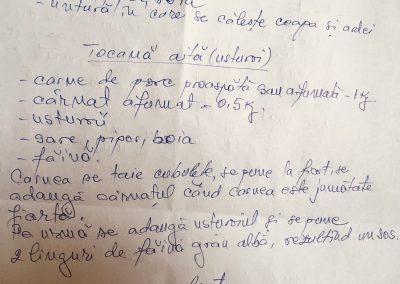 - untură/în care se călește ceapa și ardei
Tocană aită (usturoi)
- carne de porc proaspătă sau afumată - 1 Kg
- cârnat afumat - 0,5 Kg.
- usturoi
- sare, piper, boia
- făină.
Carnea se taie cubulețe, se pune la fiert, se
adaugă cârnatul când carnea este jumătate
fiartă.
Pe urmă se adaugă usturoiul și se pune
2 linguri de făină grâu albă, rezultând un sos.